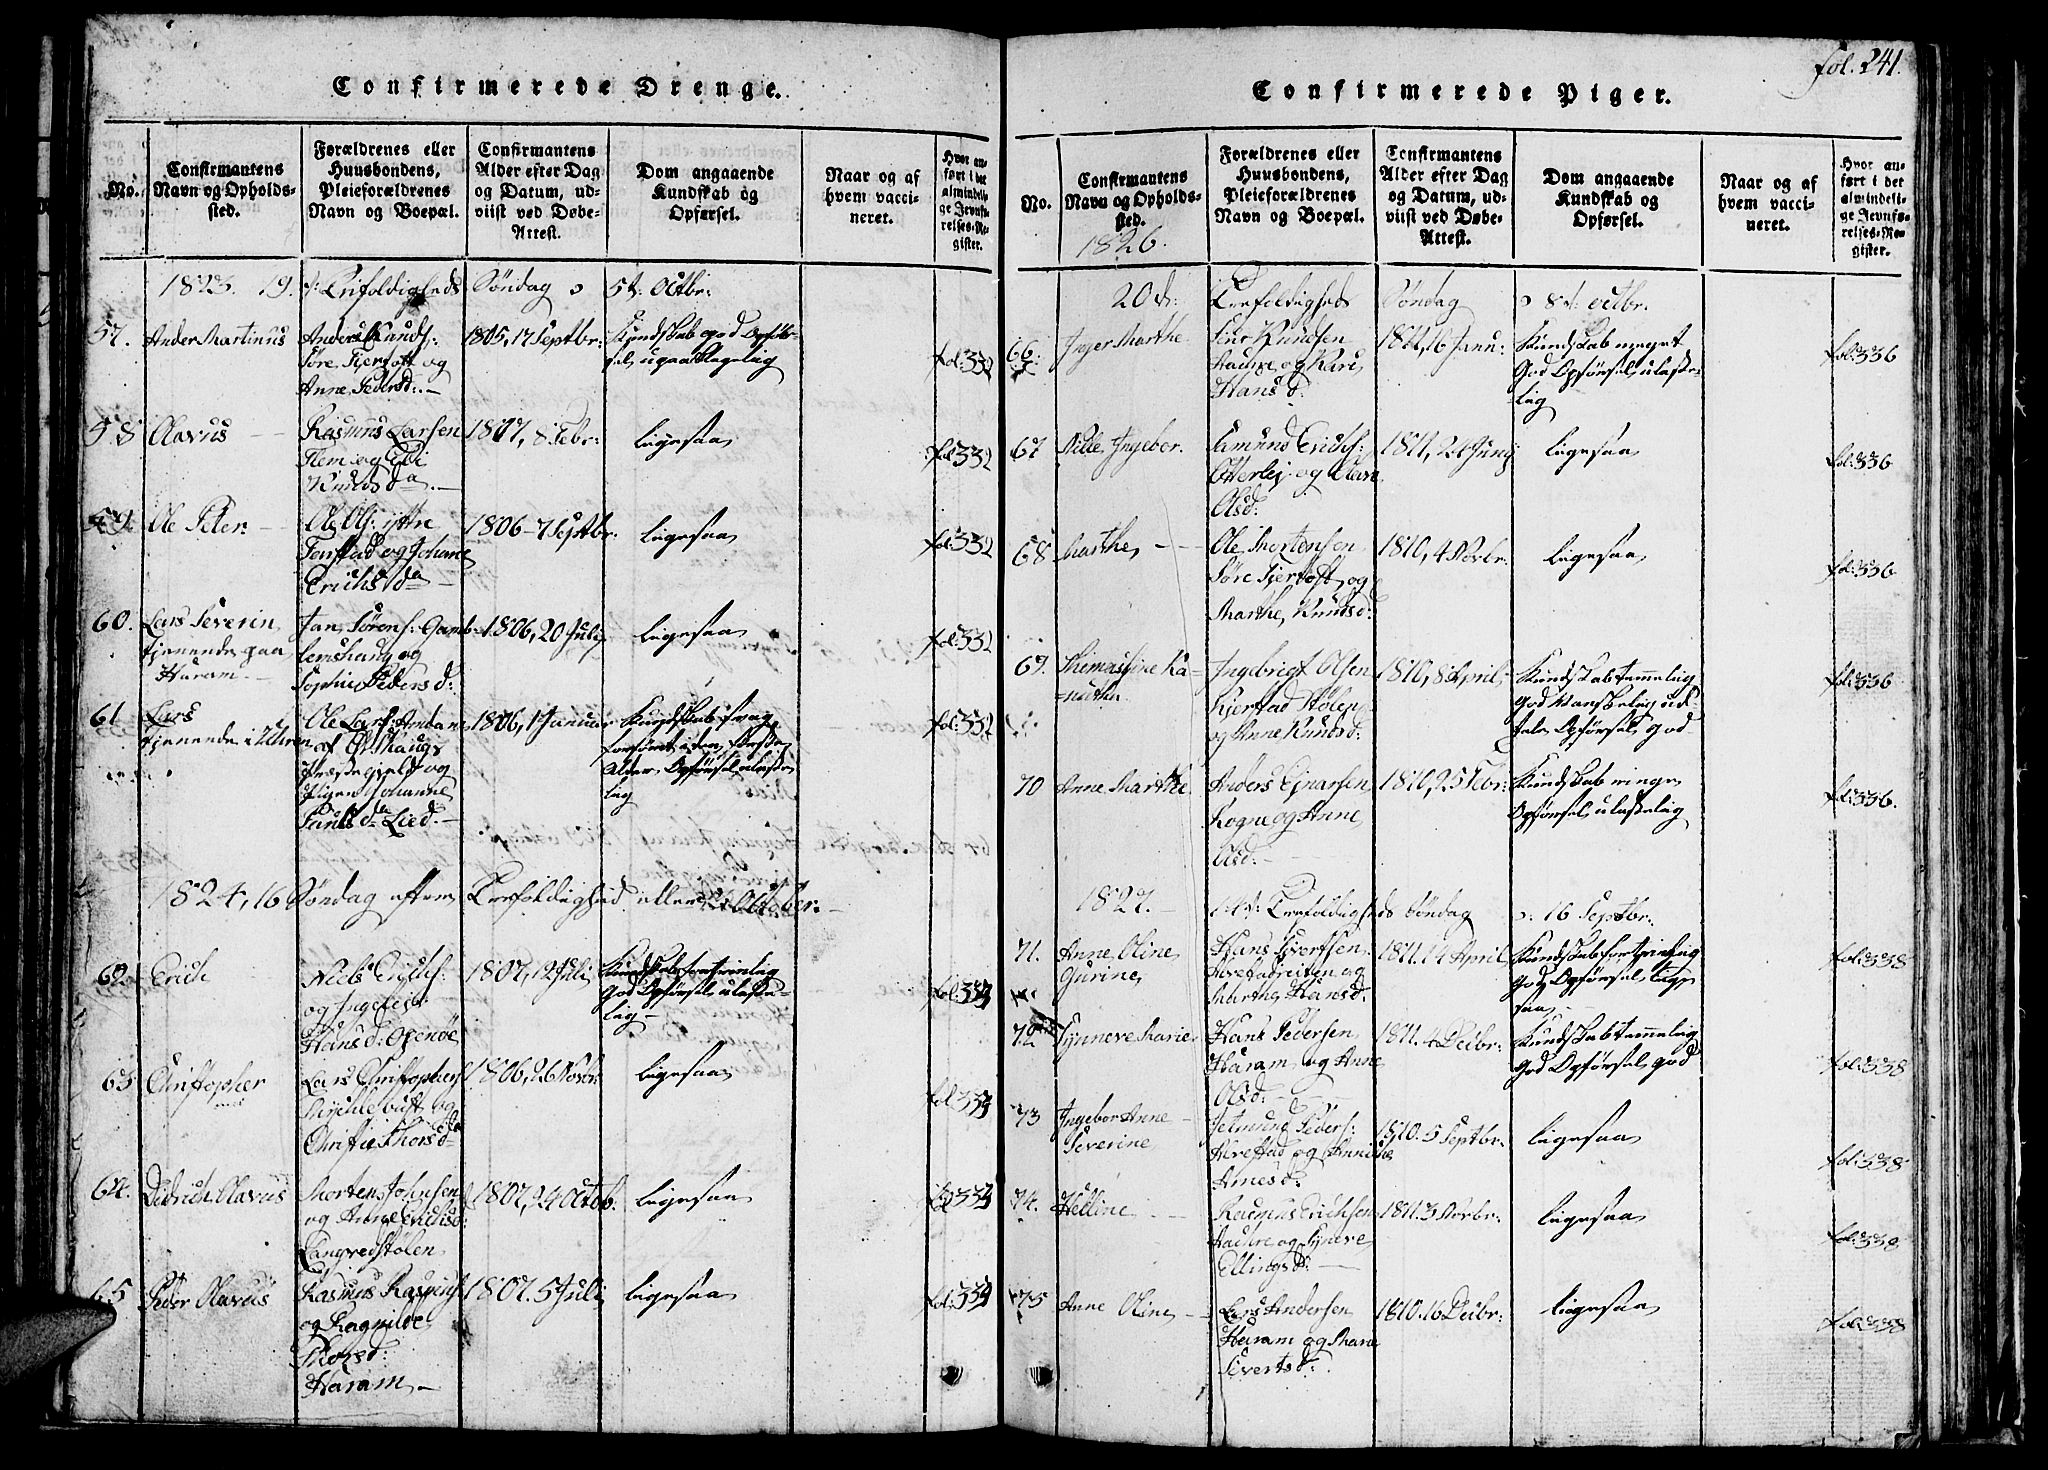 fol. 241.
Confirmerede Drenge.
No.
Confirmantens
Navn og Opholds-
sted.
Forældrenes eller
Huusbondens,
Pleieforældrenes
Navn og Boepæl.
Confirmantens
Alder efter Dag
og Datum, ud-
viist ved Døbe-
Attest.
Dom angaaende
Kundskab og
Opførsel.
Naar og af
hvem vacci-
neret.
Hvor an-
ført i det
almindeli-
ge Jevnfø-
relses-Re-
gister.
1823. 19. Trefoldigheds Søndag 5t: Octbr:
57. Ander Martinus
Anders Knuds:
Søre Fjertoft og
Anne Pedersd:
1805, 17 Septbr:
Kundskab god Opfør-
sel upaaklagelig
fol:332
58 Olavus
Rasmus Larsen
Flem og
Knudsda
1807, 8 Febr:
ligesaa
fol:332
59. Ole Peter
Ole Ols: ytre
Fenstad og Johane
Erichsda
1806 - 7 Septbr:
ligesaa
fol:332
60. Lars Severin
tjenende paa
Haram
Jan Sørens: Gam-
lemshaug og
Sophie Pedersd:
1806, 20 Juli
ligesaa
fol:332
61 Lars
tjenende i
Ole Lars:
af Ørskaugs
Præstegjeld og
Pigen Johanne
Lied.
1806, 1 Januar
Kundskab svag
Alder Opførsel ulaste-
lig
fol:332
1824, 16 Søndag efter Trefoldighed eller October:
62. Erich
Niels Erichs:
og Ingeles
Hansd: Openøe
1807, 12 Juli
Kundskab fortrinlig
god Opførsel ulaste-
lig
fol:334
63 Christopher
Lars Christophers:
Mychlebust og
Christie Thorsd
1806, 26 Novbr
ligesaa
fol:334
64. Didrich Olavus
Morten Johnsen
og Anne Erichsd:
Langvedstølen
1807, 24 Octob:
ligesaa
fol:334
65 Peder Olavus
Rasmus Rasmus:
og Ragnilde
Thorsd:
Haram
1807. 5 Juli
ligesaa
fol:334
Confirmerede Piger.
No.
Confirmantens
Navn og Opholds-
sted.
Forældrenes eller
Huusbondens,
Pleieforældrenes
Navn og Boepæl.
Confirmantens
Alder efter Dag
og Datum, ud-
viist ved Døbe-
Attest.
Dom angaaende
Kundskab og
Opførsel.
Naar og af
hvem vacci-
neret.
Hvor an-
ført i det
almindelig-
ge Jevnfø-
relses-Re-
gister.
1826.
20de: Trefoldigheds Søndag 8de: octbr.
66. Inger Marthe
Knudsen
og Kari
Hansd:
1811, 16 Janu:
Kundskab meget
god Opførsel ulaste-
lig
fol:336
67 Pille Ingebor.
Amund Erichs:
Otterlej og
Olsd:
1811, 24 Junij
ligesaa
fol:336
68 Marthe
Ole Mortensen
Søre Fjertoft og
Marthe Knudsd:
1810, 4 Novbr:
ligesaa
fol:336
69.
Ingebrigt Olsen
Kjerstad Stølen
og Anne Knudsd:
1810, 8 April
Kundskab temmelig
god
Opførsel god
fol:336
70 Anne Marthe
Anders Ejnarsen
Rogne og Anne
Olsd:
1810, 25
Kundskab ringe
Opførsel ulastelig
fol:336.
1827. 14de: Trefoldigheds Søndag 16 Septbr:
71. Anne Oline
Gurine
Hans Sjvertsen
Alrestadreiten og
Marthe Hansd:
1811. 14 April
Kundskab fortrinlig
god Opførsel lige-
saa
fol:338
72 Synneve Marie
Hans Pedersen
Haram og Anne
Olsd:
1811. 4 Decbr:
Kundskab temmelig
god Opførsel god
fol:338
73 Ingebor Anne
Severine
Jetmund Peders:
Alrestad og Anne
Arnesd:
1810. 5 Septbr:
ligesaa
fol:338
74. Helline
Rasmus Erichsen
og Synneve
Ellingsd:
1811. 3 Novbr:
ligesaa
fol:338
75 Anne Oline
Lars Andersen
Haram og Mare
Sivertsd:
1810. 16 Decbr:
ligesaa
fol:338